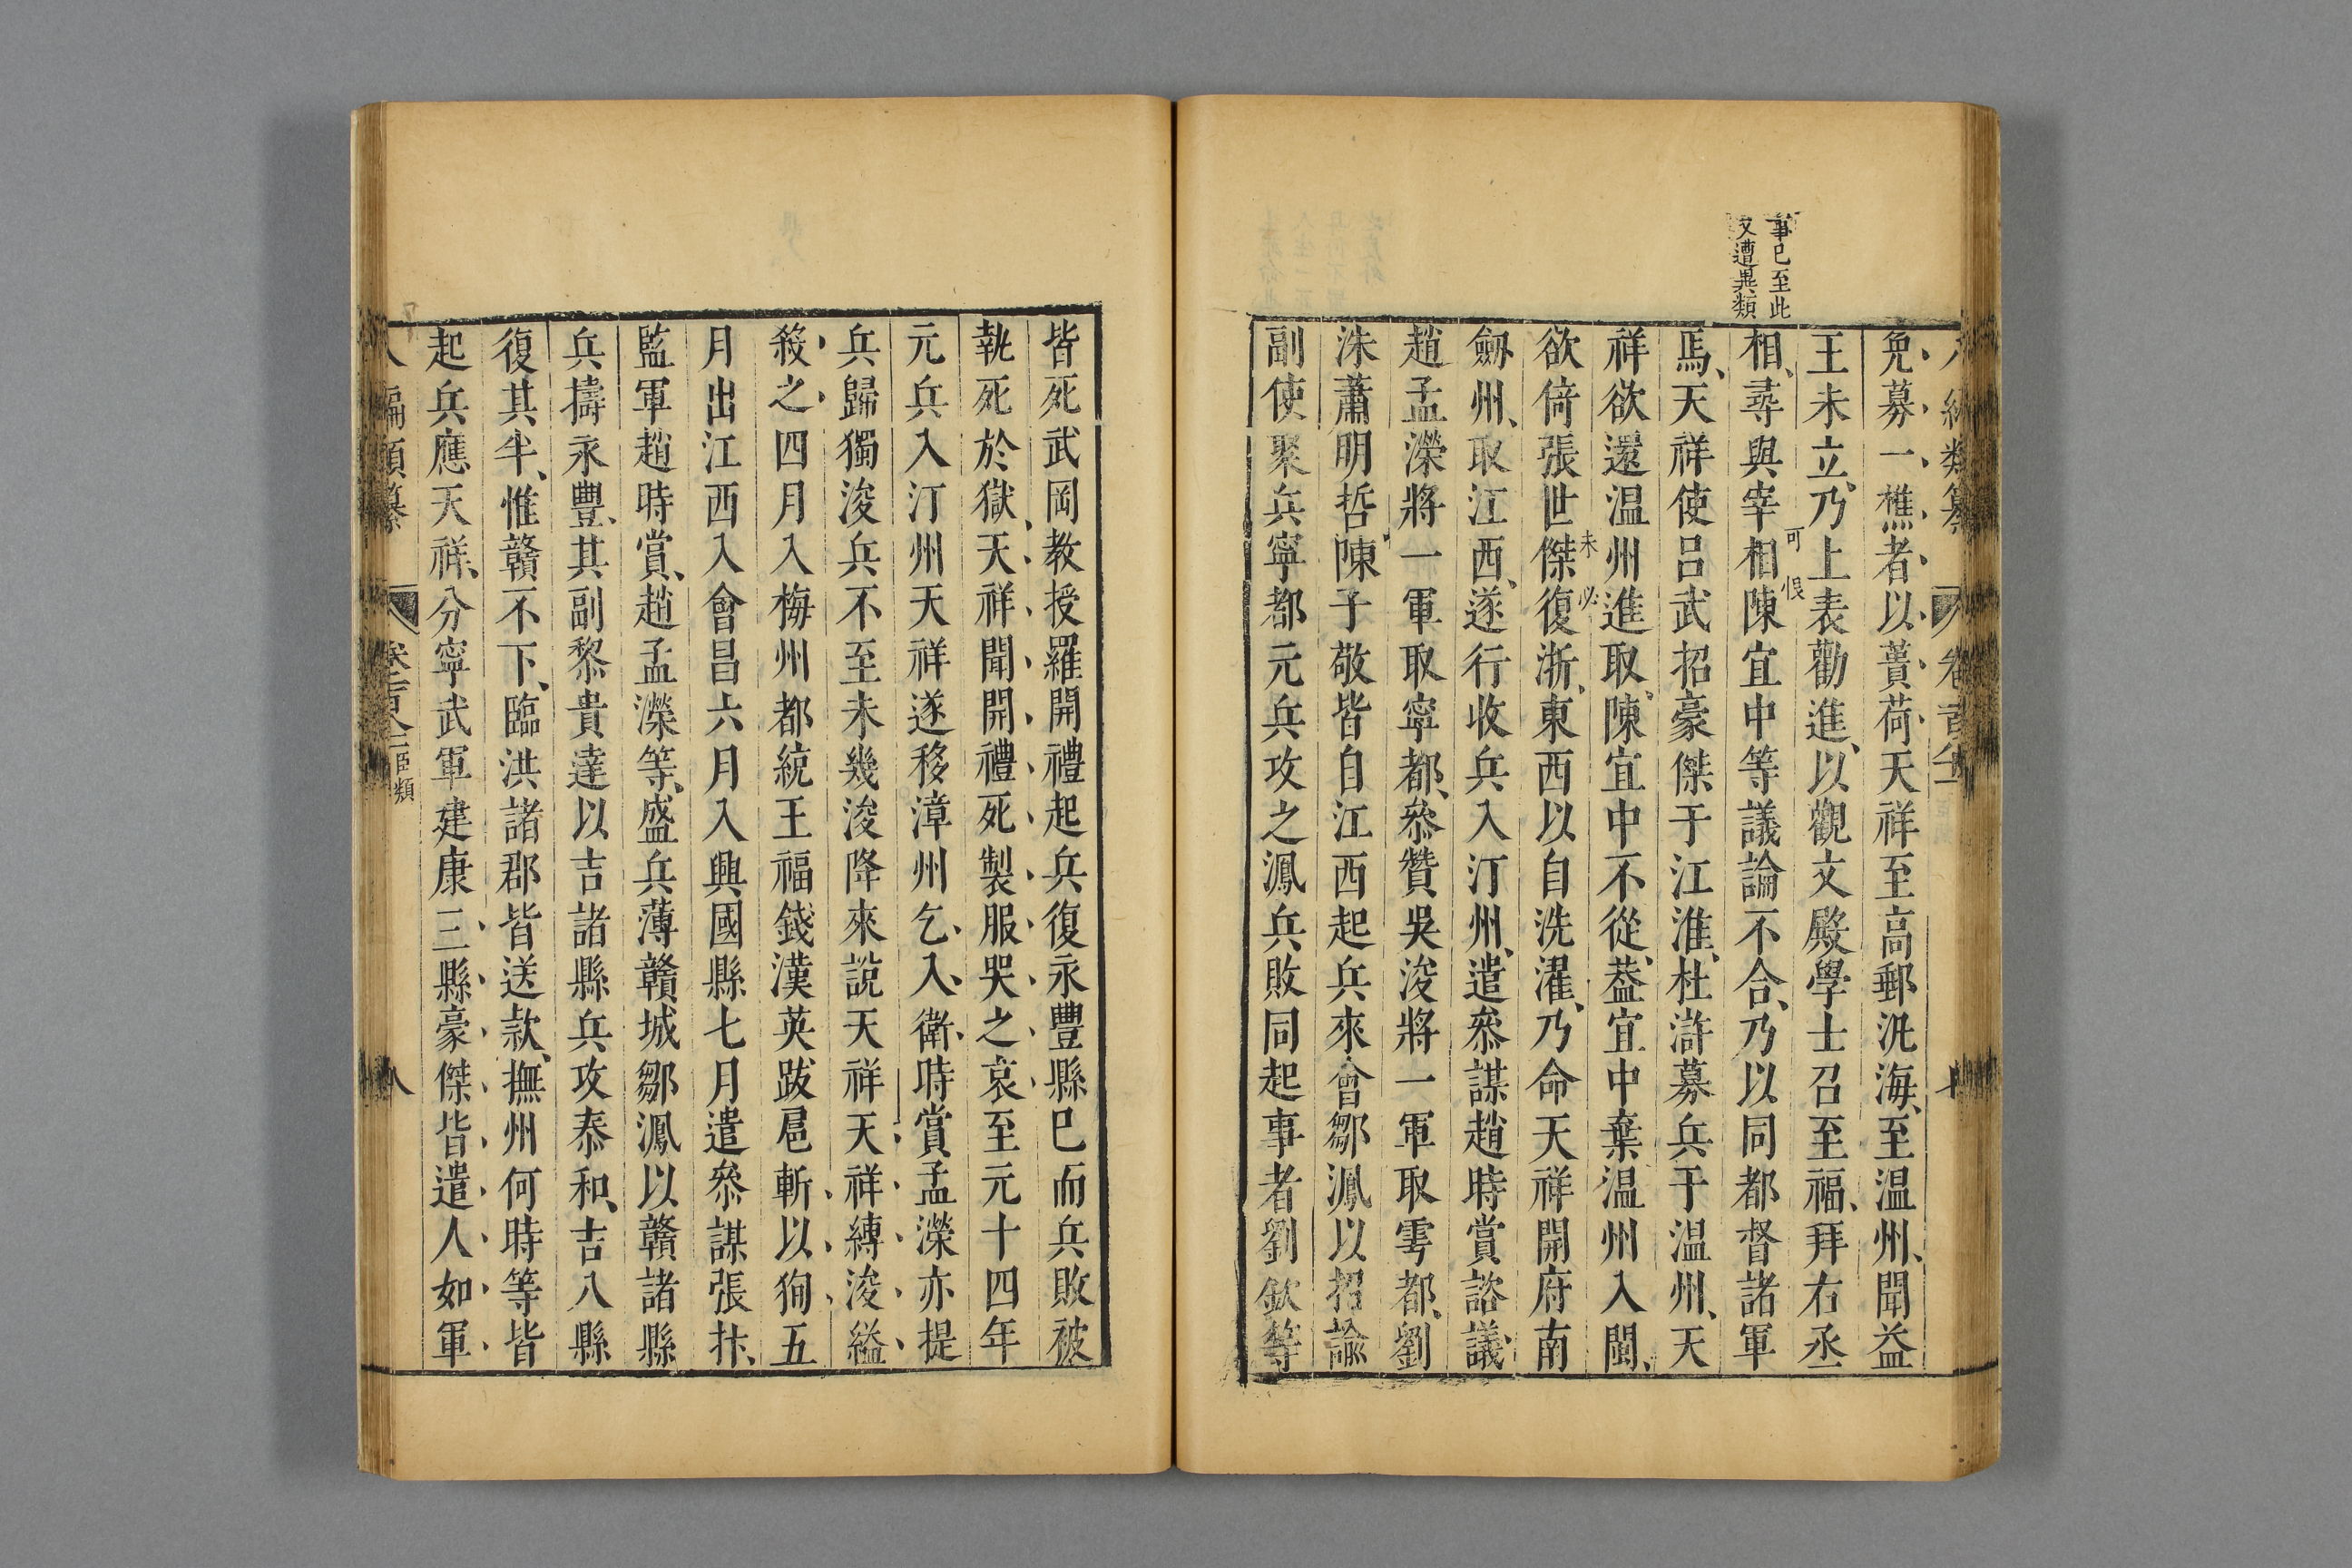 事已至此
又遭異類
免募一樵者以蕢荷天祥至高郵汎海、至温州、聞益
王未立、乃上表勸進、以觀文殿學士召至福、拜右丞
可恨
相、尋與宰相陳宜中等議論不合、乃以同都督諸軍
焉、天祥使吕武招豪傑于江淮、杜滸募兵于温州、天
祥欲還温州進取、陳宜中不從、葢宜中棄温州入閩、
未必
欲倚張世傑復浙、東西以自洗濯、乃命天祥開府南
劒州、取江西、遂行收兵入汀州、遣叅謀趙時賞諮議
趙孟濚將一軍取寧都、叅贊吳浚將一軍取雩都、劉
洙蕭明哲陳子敬皆自江西起兵來會鄒㵯以招諭
副使聚兵寧都元兵攻之㵯兵敗同起事者劉欽等
皆死武岡教授羅開禮起兵復永豐縣已而兵敗被
執死於獄、天祥聞開禮死製服哭之哀至元十四年
元兵入汀州天祥遂移漳州乞、入、衛、時賞孟濚亦提
兵歸獨浚兵不至未幾浚降來說天祥天祥縛浚縊
殺之四月入梅州都統王福錢漢英跋扈斬以狥五
月出江西入會昌六月入興國縣七月遣叅謀張抃、
監軍趙時賞、趙孟濚等、盛兵薄贛城鄒㵯以贛諸縣
兵擣永豐、其副黎貴達以吉諸縣兵攻泰和、吉八縣
復其半、惟贛不下、臨洪諸郡皆送款、撫州何時等皆
起兵應天祥、分寧武軍建康三縣豪傑皆遣人如軍
八編類纂
臣類
八